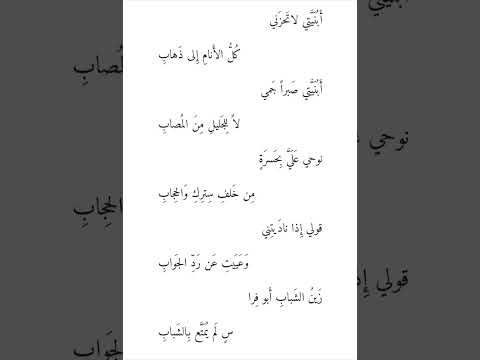 أَبُنَيَّتي لاتَحزَني
كُلُّ الأَنامِ إِلى ذَهابِ
أَبُنَيَّتي صَبراً جَمي
لاً لِلجَليلِ مِنَ المُصابِ
نوحي عَلَيَّ بِحَسرَةٍ
مِن خَلفِ سِترِكِ وَالحِجابِ
قولي إِذا نادَيتِني
وَعَيَيتِ عَن رَدِّ الجَوابِ
زَينُ الشَبابِ أَبو فِرا
سٍ لَم يُمَتَّع بِالشَبابِ